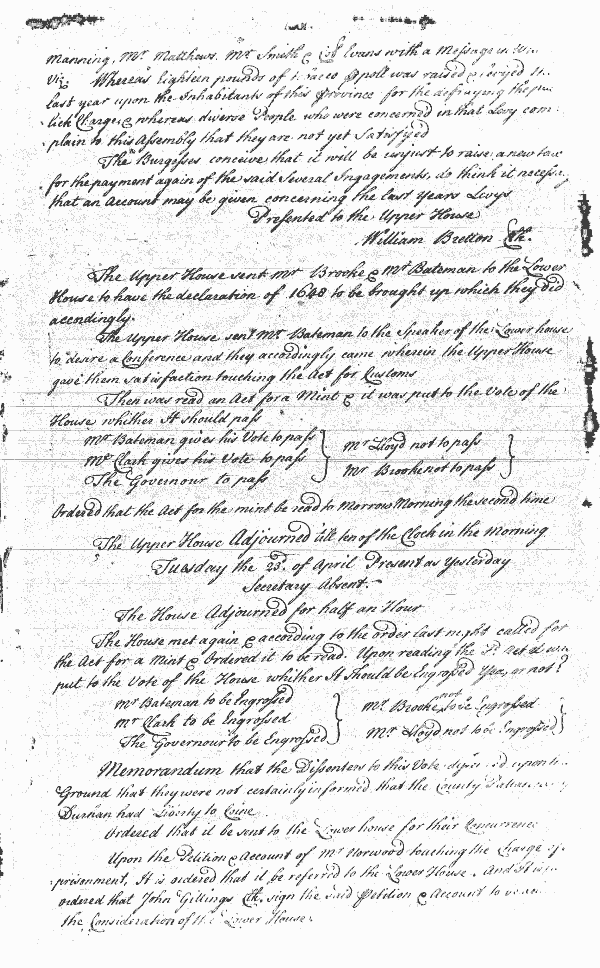 manning, Mr Matthews. Mr Smith & Evans with a Message in
Viz. Whereas Eighteen pounds of Tobacco Ppoll was raised & levyed
last year upon the Inhabitants of this Province for the defraying the pu
lick Charge & whereas diverse People who were concerned in that Levy com
plain to this Assembly that they are not yet Satisfyed
The Burgesses conceive that it will be unjust to raise a new tax
for the payment again of the said Several Engagements, do think it necessa
that an Account may be given concerning the last Years Levys
Presented to the Upper House
William Bretton Clk.
The Upper House sent Mr Brooke & Mr Bateman to the Lower
House to have the declaration of 1648 to be brought up which they did
accordingly.
The Upper House sent Mr Bateman to the Speaker of the Lower house
to desire a Conference and they accordingly came wherein the Upper House
gave them satisfaction touching the Act for Customs
Then was read an Act for a Mint & it was put to the Vote of the
House whether It should pass
Mr Bateman gives his Vote to pass } Mr Lloyd not to pass }
Mr Clark gives his Vote to pass Mr Brooke not to pass
The Governour to pass
Ordered that the Act for the mint be read to Morrow Morning the second time
The Upper House Adjourned till ten of the Clock in the Morning
Tuesday the 23d. of April Present as Yesterday
Secretary Absent.
The House Adjourned for half an Hour
The House met again & according to the order last night called for
the Act for a Mint & Ordered it to be read. Upon reading the sd Act it was
put to the Vote of the House whether It Should be Engrossed Yea, or not?
Mr Bateman to be Engrossed } Mr Brooke not to be Engrossed }
Mr Clark to be Engrossed Mr Lloyd not to be Engrossed
The Governour to be Engrossed
Memorandum that the Dissenters to this Vote upon
Ground that they were not certainly informed that the County
Durham had Liberty to Coine
Ordered that it be sent to the Lower house for their Concurrence
Upon the Petition & Account of Mr Norwood touching the Charge of
prisonment, It is ordered that it be referred to the Lower House. And It is
ordered that John Gittings Clk. sign the said Petition & Account to
the Consideration of the Lower House.